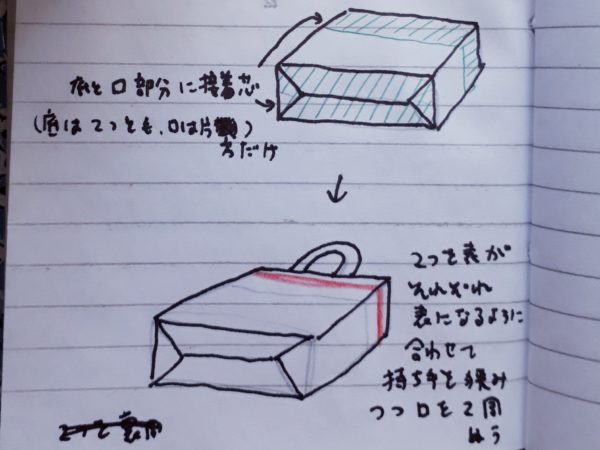 底と口部分に接着芯
(底は2つとも、口は片
方だけ)
↓
2つを表が
それぞれ
表になるように
合わせて
持ち手を挟み
つつ口を2周
ぬう